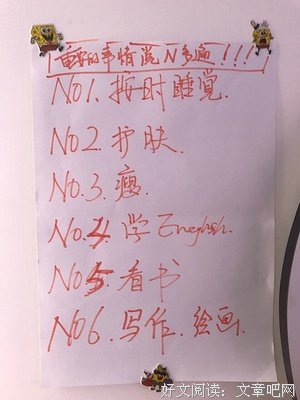 重要的事情说N多遍!!!
No1.按时睡觉.
No2.护肤.
No.3.瘦.
No.4.学English.
No5.看书
No6.写作.绘画.
好文阅读:文章吧网